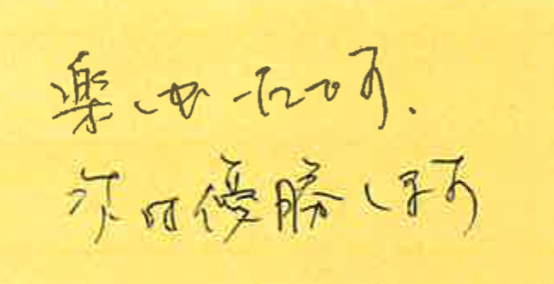 楽しかったです.
次は優勝します